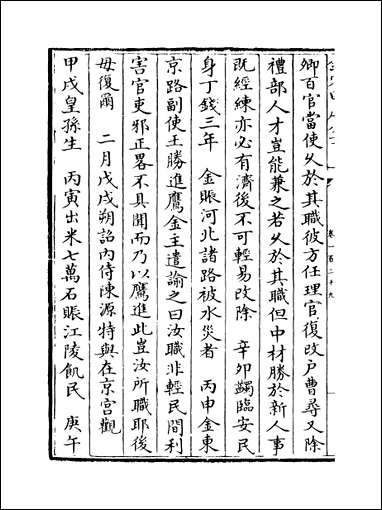 卿百官當使久於其職彼方任理官復改戶曹尋又除
禮部人才豈能兼之若久於其職但中材勝於新人事
既經練亦必有濟後不可輕易改除　辛卯蠲臨安民
身丁錢三年　金賑河北諸路被水災者　丙申金東
京路副使王勝進鷹金主遣諭之曰汝職非輕民間利
害官吏邪正畧不具聞而乃以鷹進此豈汝所職耶後
毋復爾　二月戊戌朔詔内侍陳源特與在京宮觀
甲戌皇孫生　丙寅出米七萬石賑江陵飢民　庚午